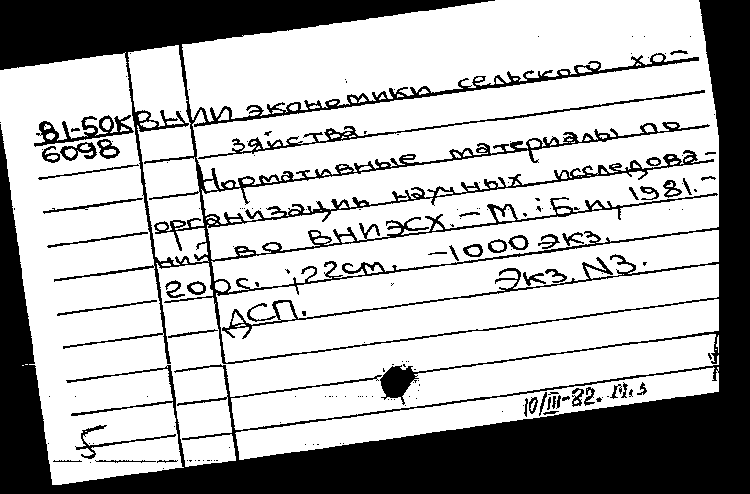 81-50К ВНИИ экономики сельского хо-
6098 зяйства.
Нормативные материалы по
организации научных исследова-
ний во ВНИЭСХ. - М. : Б.и., 1981. -
200с. ; 22см. - 1000 экз.
Экз. N3.
ДСП.
10/III-82.